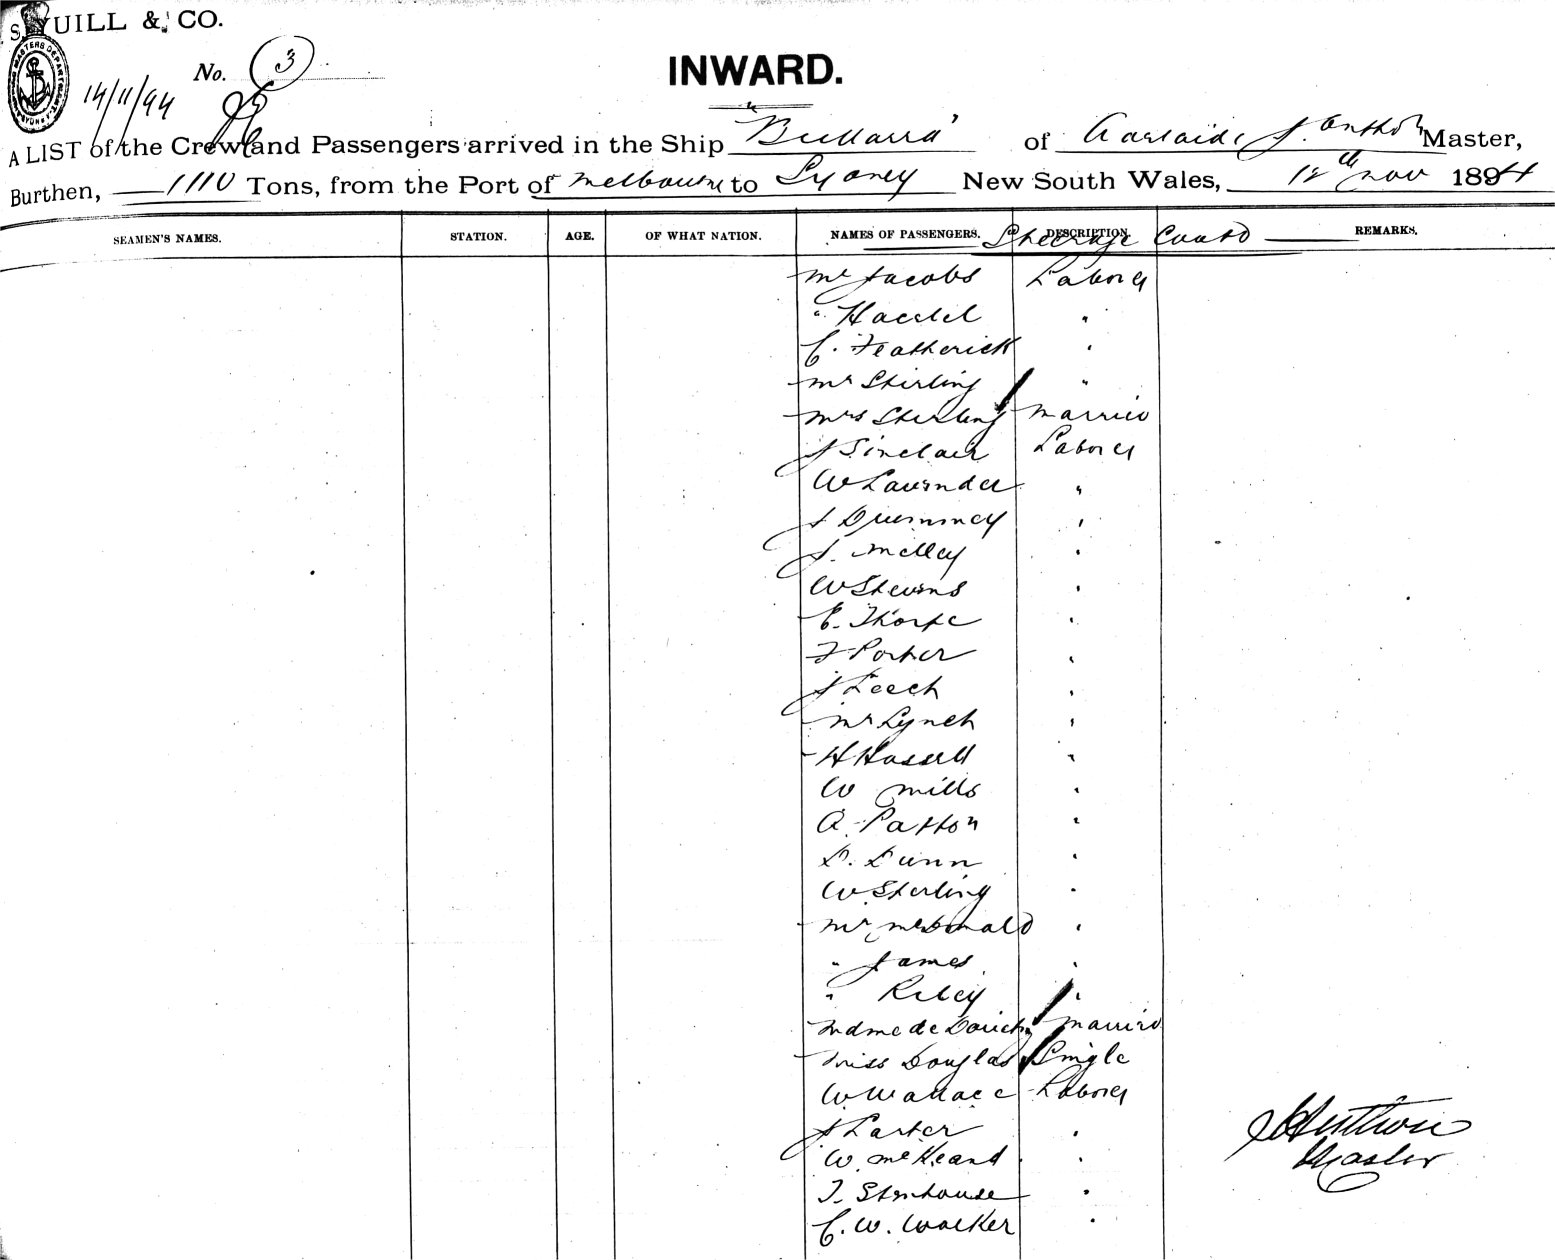 YUILL & CO.
No. 3
14/11/94
INWARD.
A LIST of the Crew and Passengers arrived in the Ship "Bullarra" of Adelaide J. Anthon Master,
Burthen, 1110 Tons, from the Port of Melbourne to Sydney New South Wales, 12th Nov 1894
SEAMEN'S NAMES. STATION. AGE. OF WHAT NATION. NAMES OF PASSENGERS. DESCRIPTION REMARKS.
Steerage Contd
Mr Jacobs Laborer
"
C. Featherick "
Mr Stirling "
Mrs Sterling Married
J Sinclair Laborer
W Lavender "
J Drummey "
J. Melley "
W Stevens "
E. Thorpe "
F Porter "
J Leech "
Mr Lynch "
H Hassell "
W Mills "
A. Patton "
D. Dunn "
W. Sterling "
Mr McDonald "
" James "
" Riley "
Mdme de Married
Miss Douglas Single
W Wallace Laborer
J Carter "
W. "
T. Stenhouse "
C. W. Walker "
Master